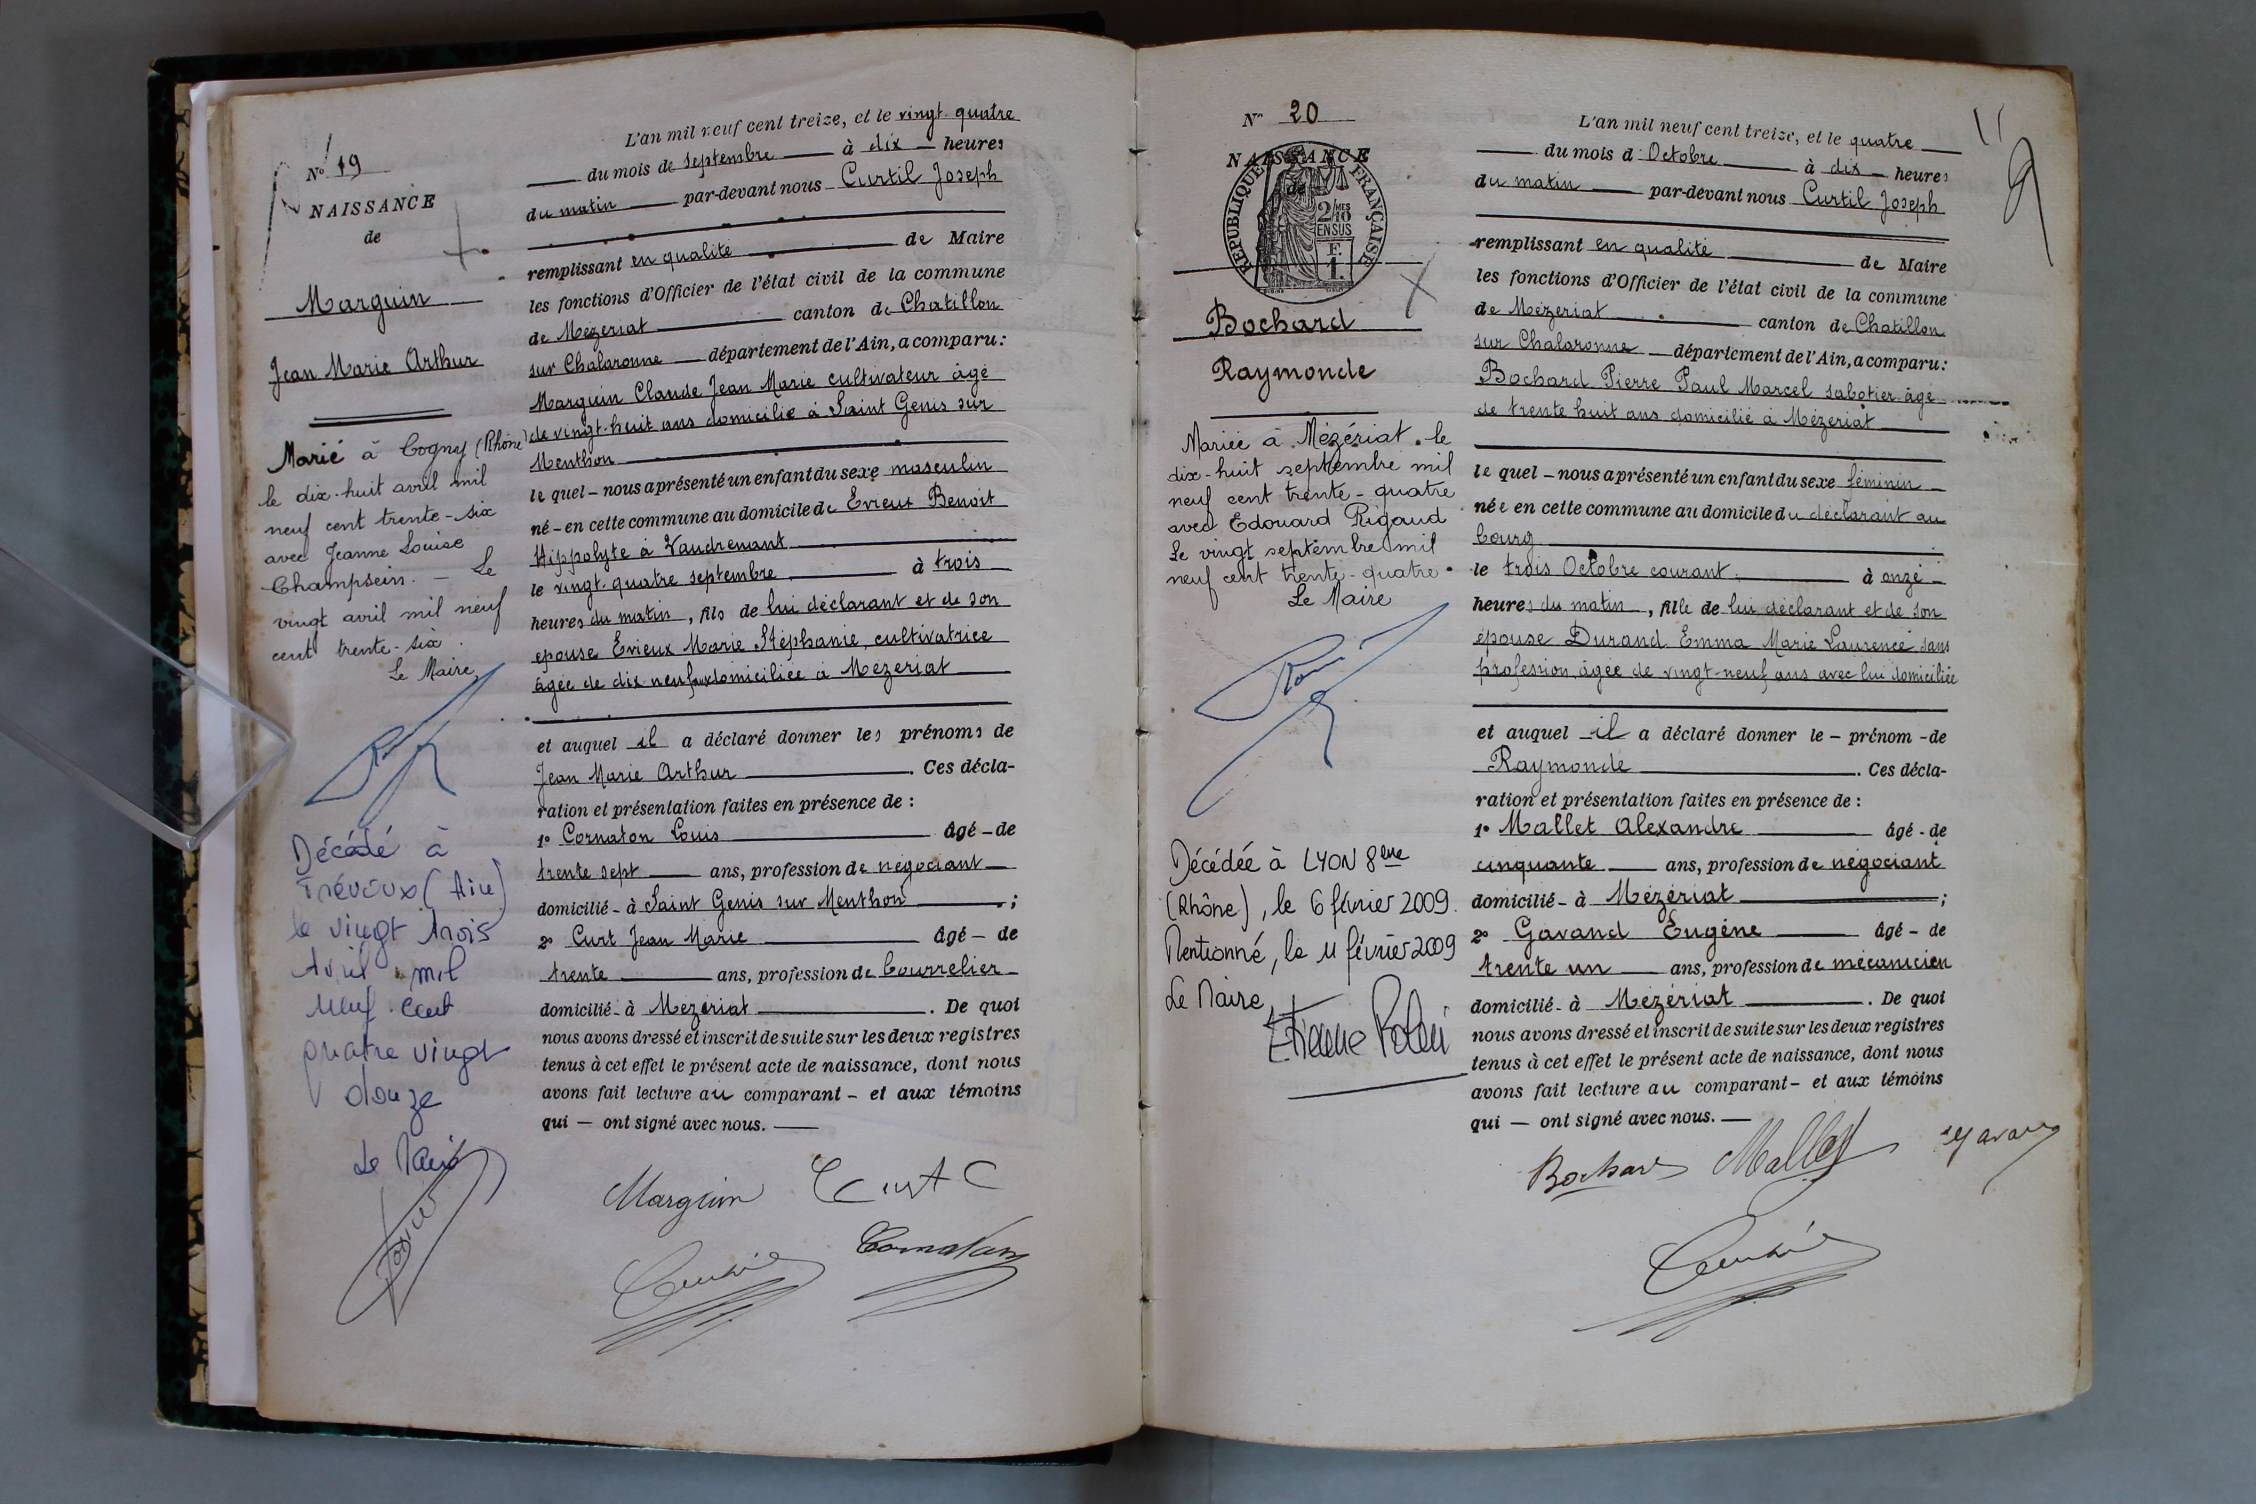 N° 19
NAISSANCE
de
Marguin
Jean Marie Arthur
Marié à Cogny (Rhône)
le dix-huit avril mil
neuf cent trente-six
avec Jeanne Louise
Champsein. - Le
vingt avril mil neuf
cent trente-six.
Le Maire
Décédé à
Trévoux (Ain)
le vingt trois
Avril mil
neuf cent
quatre vingt
douze
Le Maire
L'an mil neuf cent treize, et le vingt quatre
du mois de septembre à dix heures
du matin par-devant nous Curtil Joseph
remplissant en qualité de Maire
les fonctions d'Officier de l'état civil de la commune
de Mézériat canton de Chatillon
sur Chalaronne département de l'Ain, a comparu:
Marguin Claude Jean Marie cultivateur âgé
de vingt-huit ans domicilié à Saint Genis sur
Menthon
lequel - nous a présenté un enfant du sexe masculin
né - en cette commune au domicile de Evieux Benoît
Hippolyte à Vaudrenant
le vingt-quatre septembre à trois
heures du matin, fils de lui déclarant et de son
épouse Evieux Marie Stéphanie, cultivatrice
âgée de dix-neuf ans domiciliée à Mézériat
et auquel il a déclaré donner les prénoms de
Jean Marie Arthur . Ces décla-
ration et présentation faites en présence de :
1° Cornaton Louis âgé - de
trente sept ans, profession de négociant
domicilié - à Saint Genis sur Menthon ;
2° Curt Jean Marie âgé - de
trente ans, profession de bourrelier
domicilié - à Mézériat . De quoi
nous avons dressé et inscrit de suite sur les deux registres
tenus à cet effet le présent acte de naissance, dont nous
avons fait lecture au comparant - et aux témoins
qui — ont signé avec nous. —
Marguin Curt C
Cornaton
N° 20
NAISSANCE
de
RÉPUBLIQUE FRANÇAISE
2/10 MES
EN SUS
F.
1.
Bochard
Raymonde
Mariée à Mézériat le
dix-huit septembre mil
neuf cent trente-quatre
avec Edouard Rigaud
Le vingt septembre mil
neuf cent trente-quatre
Le Maire
Décédée à LYON 8ème
(Rhône), le 6 février 2009.
Mentionné, le 11 février 2009
Le Maire,
L'an mil neuf cent treize, et le quatre
du mois d'Octobre à dix heures
du matin par-devant nous Curtil Joseph
remplissant en qualité de Maire
les fonctions d'Officier de l'état civil de la commune
de Mézériat canton de Chatillon
sur Chalaronne département de l'Ain, a comparu:
Bochard Pierre Paul Marcel sabotier âgé
de trente huit ans domicilié à Mézériat
lequel - nous a présenté un enfant du sexe féminin
née en cette commune au domicile du déclarant au
bourg
le trois Octobre courant à onze
heures du matin, fille de lui déclarant et de son
épouse Durand Emma Marie Laurence sans
profession, âgée de vingt-neuf ans avec lui domiciliée
et auquel il a déclaré donner le - prénom - de
Raymonde . Ces décla-
ration et présentation faites en présence de :
1° Mallet Alexandre âgé - de
cinquante ans, profession de négociant
domicilié - à Mézériat ;
2° Gavand Eugène âgé - de
trente un ans, profession de mécanicien
domicilié - à Mézériat . De quoi
nous avons dressé et inscrit de suite sur les deux registres
tenus à cet effet le présent acte de naissance, dont nous
avons fait lecture au comparant - et aux témoins
qui — ont signé avec nous. —
Bochard Mallet Gavand